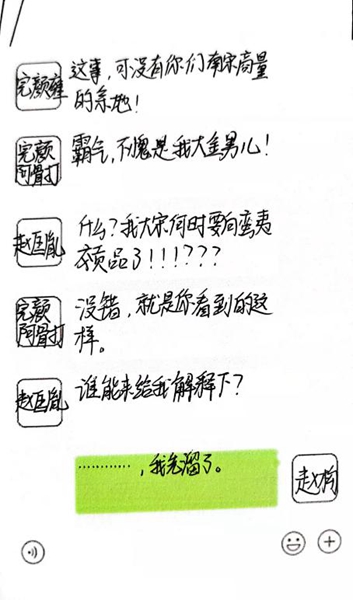 完颜雍
这事，可没有你们南宋商量
的余地！
完颜
阿骨打
霸气，不愧是我大金男儿！
赵匡胤
什么？我大宋何时要向蛮夷
交贡品了！！！？？？
完颜
阿骨打
没错，就是你看到的这
样。
赵匡胤
谁能来给我解释下？
…………，我先溜了。
赵构